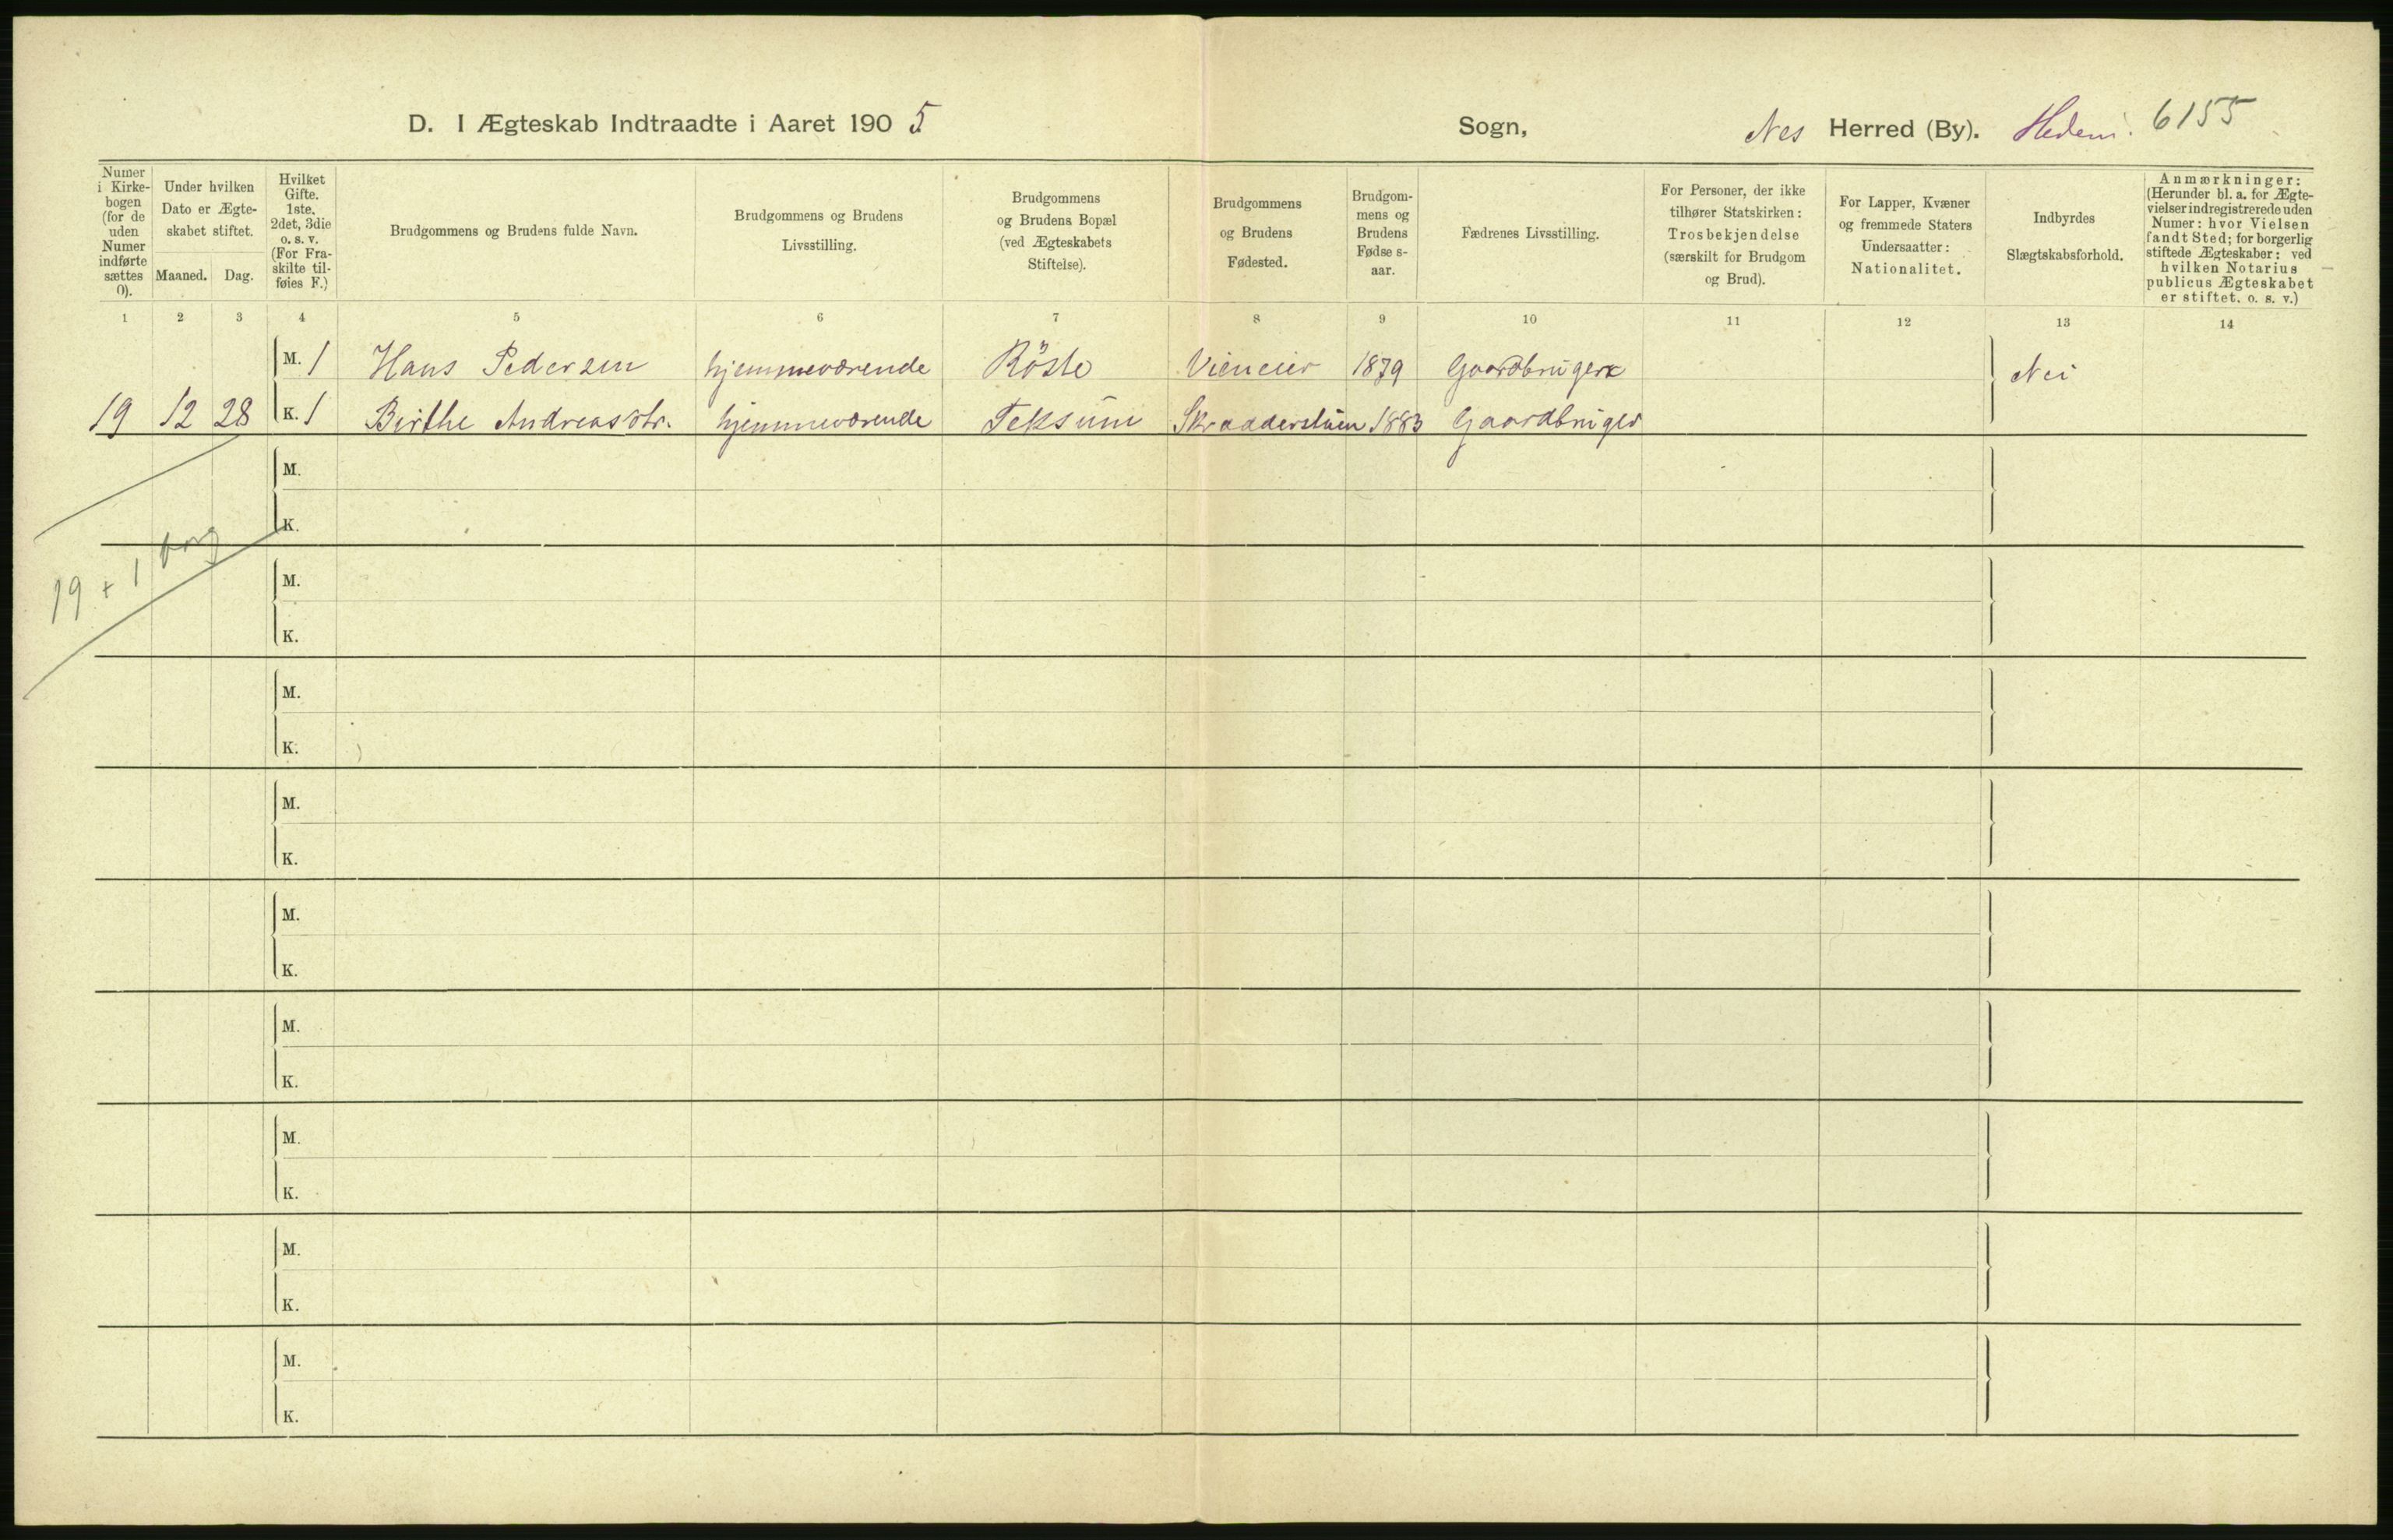 D. I Ægteskab Indtraadte i Aaret 1905 Sogn, Nes Herred (By). Hedem. 6155
Numer i Kirke- bogen (for de uden Numer indførte sættes 0).
Under hvilken Dato er Ægte- skabet stiftet.
Maaned. Dag.
Hvilket Gifte. 1ste, 2det, 3die o. s. v. (For Fra- skilte til- føies F.)
Brudgommens og Brudens fulde Navn.
Brudgommens og Brudens Livsstilling.
Brudgommens og Brudens Bopæl (ved Ægteskabets Stiftelse).
Brudgommens og Brudens Fødested.
Brudgom- mens og Brudens Fødse s- aar.
Fædrenes Livsstilling.
For Personer, der ikke tilhører Statskirken: Trosbekjendelse (særskilt for Brudgom og Brud).
For Lapper, Kvæner og fremmede Staters Undersaatter: Nationalitet.
Indbyrdes Slægtskabsforhold.
Anmærkninger: (Herunder bl. a. for Ægte- vielser indregistrerede uden Numer: hvor Vielsen fandt Sted; for borgerlig stiftede Ægteskaber: ved hvilken Notarius publicus Ægteskabet er stiftet, o. s. v.)
1 2 3 4 5 6 7 8 9 10 11 12 13 14
M. 1 Hans Pedersen hjemmeværende Röste Vieneier 1879 Gaardbruger Nei
19 12 28 K. 1 Birthe Andreasdtr. hjemmeværende Teksum Skradderstuen 1883 Gaardbruger
M.
K.
19 + 1 borg
M.
K.
M.
K.
M.
K.
M.
K.
M.
K.
M.
K.
M.
K.
M.
K.